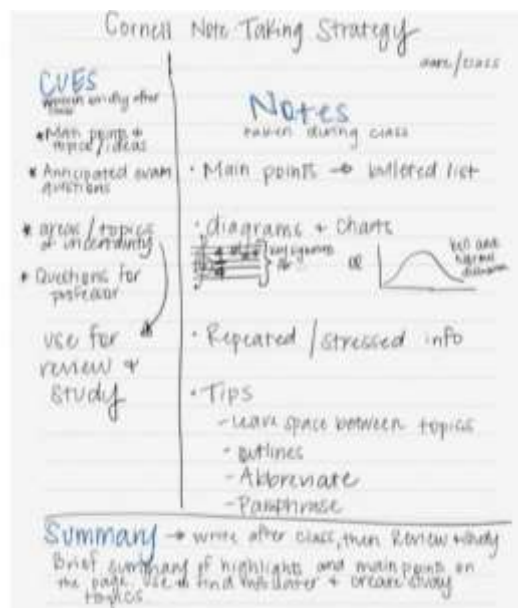 Cornell Note Taking Strategy
date/class
CUES
written briefly after
class
* Main points +
topics/ideas
* Anticipated exam
questions
* areas/topics
of uncertainty
* Questions for
professor
use for
review +
study
Notes
taken during class
• Main points → bulleted list
• diagrams + charts
key signatures
or
bell curve
normal
• Repeated/stressed info
• Tips
- leave space between topics
- outlines
- Abbreviate
- Paraphrase
Summary → write after class, then Review + study
Brief summary of highlights and main points on
the page. Use to find info later + create study
topics